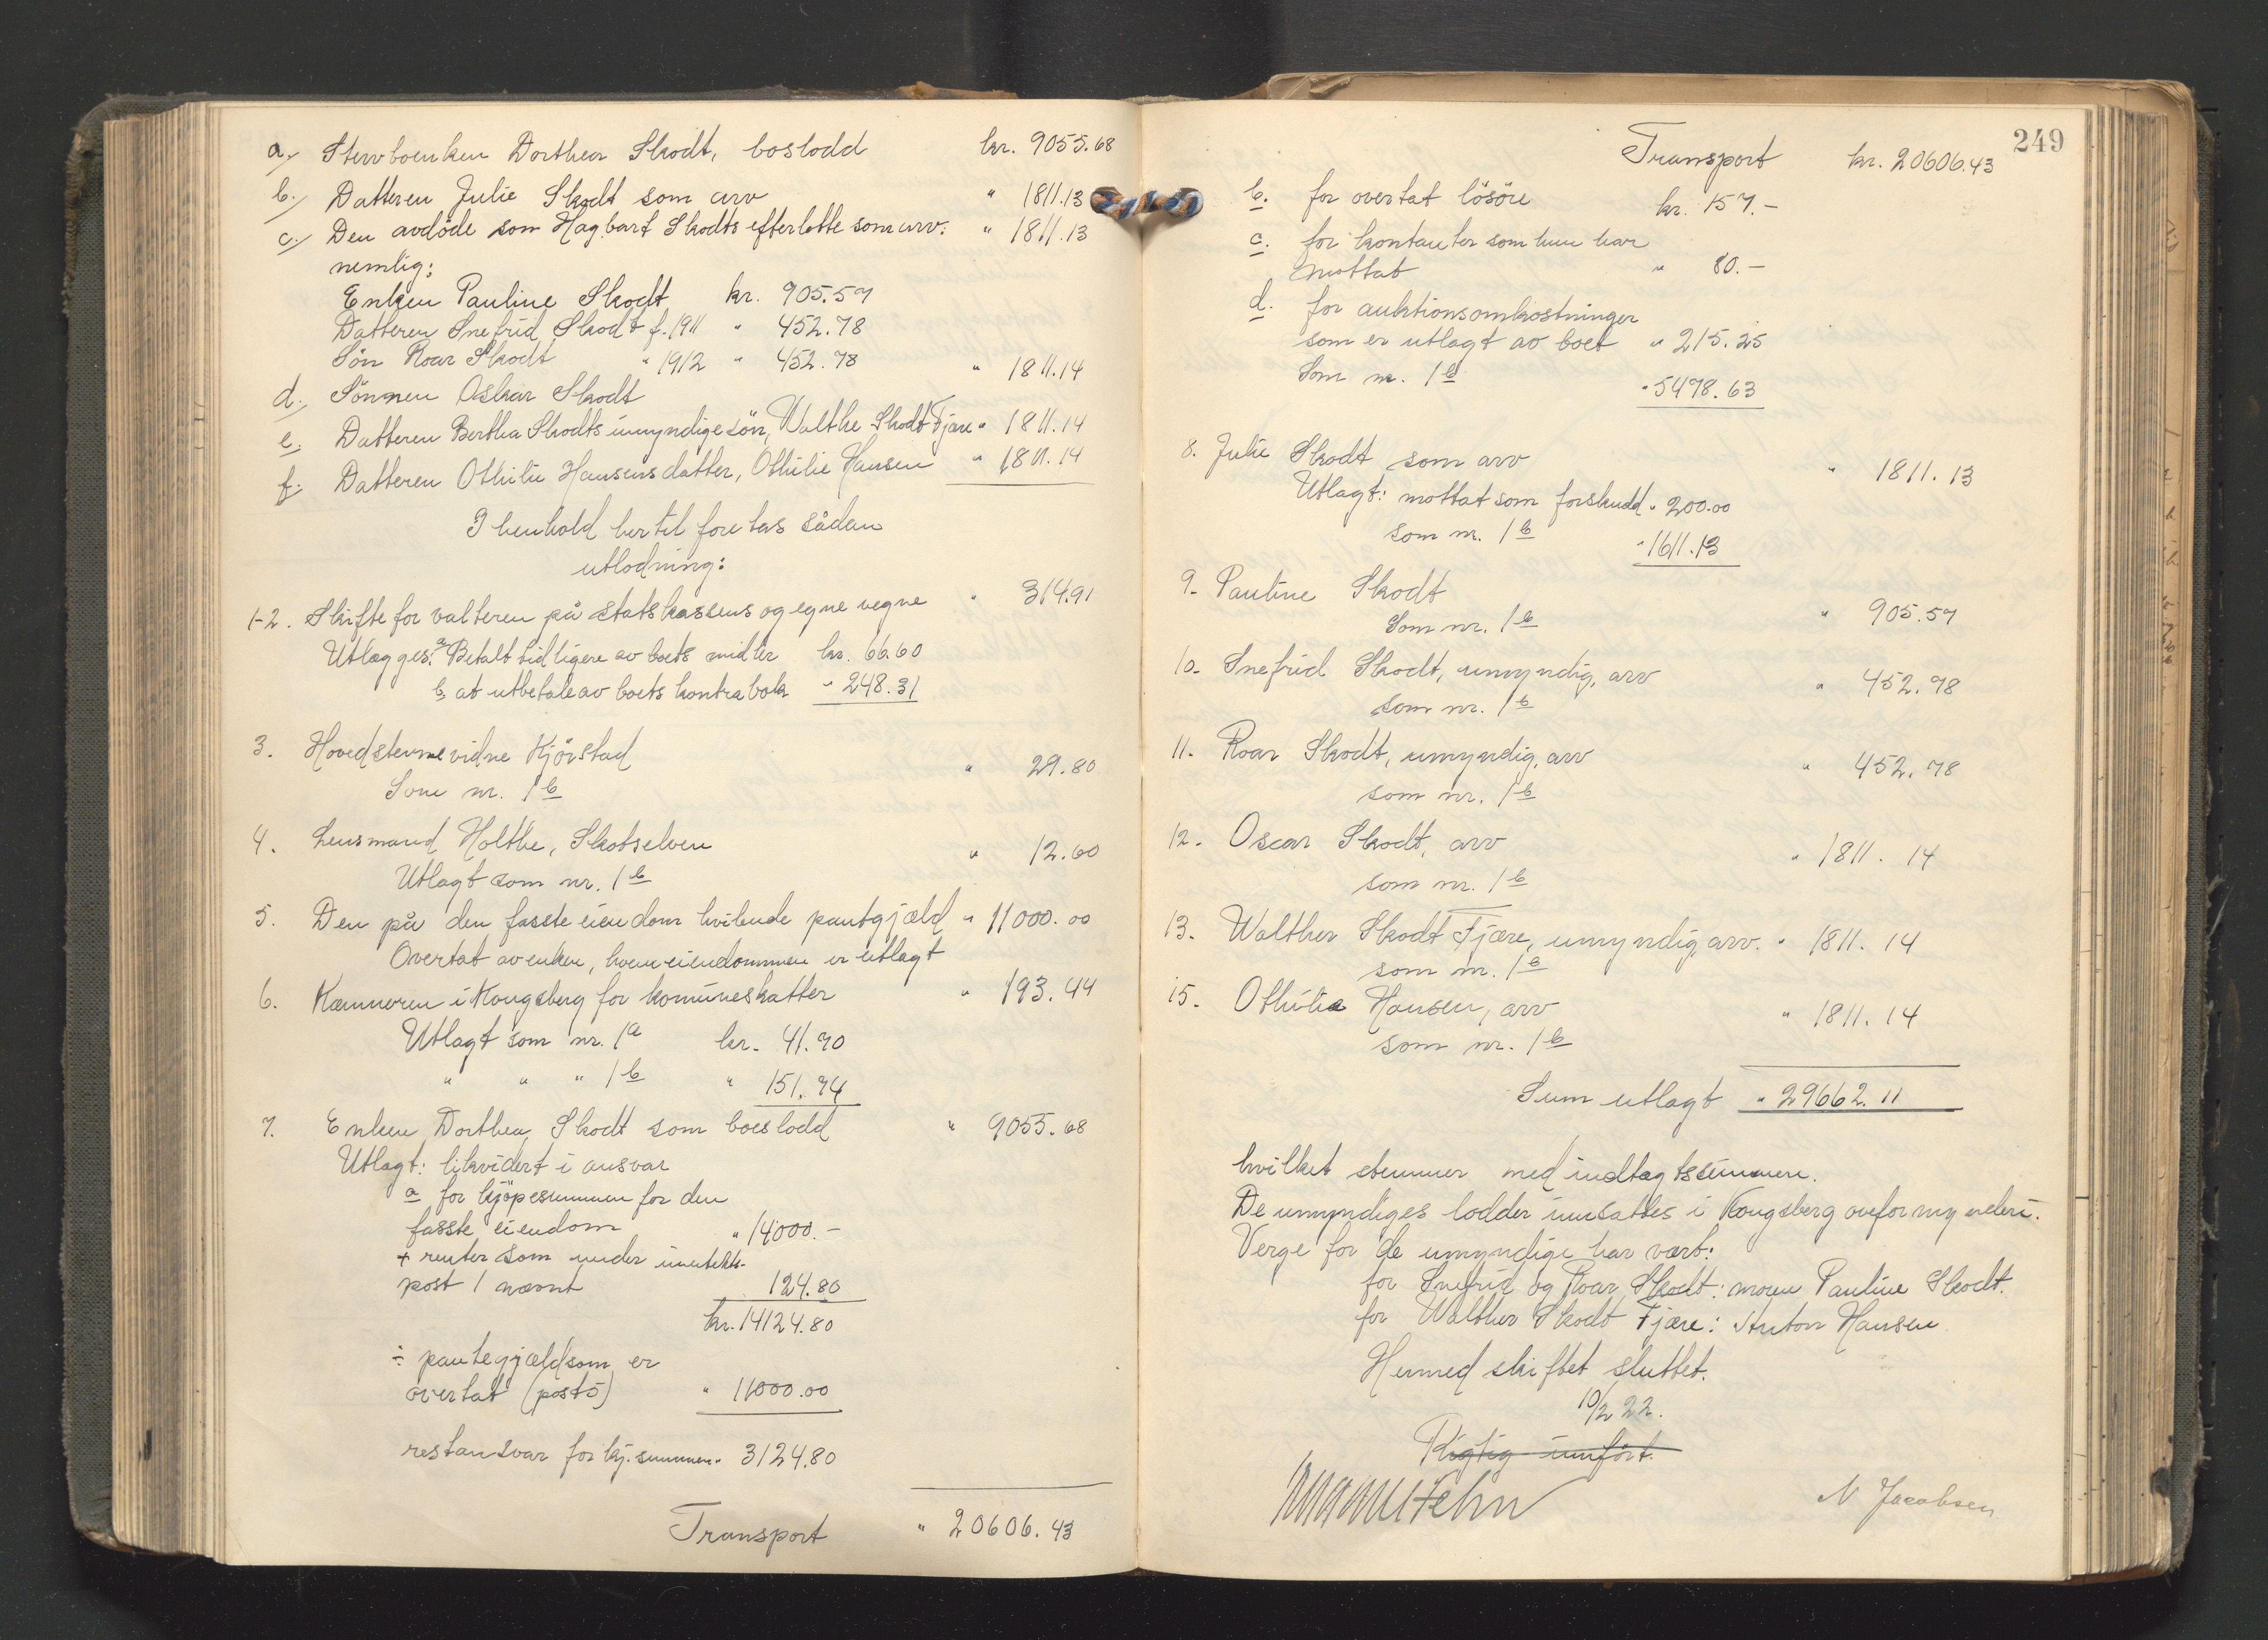 a./ Stervboenken Dorthea Skodt, boslodd kr. 9055.68
b./ Datteren Julie Skodt som arv " 1811.13
c./ Den avdöde søn Hagbart Skodts efterlatte som arv: " 1811.13
nemlig:
Enken Pauline Skodt kr. 905.57
Datteren Snefrid Skodt f. 1911 " 452.78
Sön Roar Skodt " 1912 " 452.78
d./ Sönnen Oskar Skodt " 1811.14
e. Datteren Bertha Skodts umyndige sön, Walthe Skodt Fjære " 1811.14
f. Datteren Othilie Hansens datter, Othilie Hansen " 1811.14
I henhold hertil foretas sådan
utlodning:
1-2. Skifteforvalteren på statskassens og egne vegne " 314.91
Utlægges: a Betalt tidligere av boets midler kr. 66.60
b at utbetale av boets kontrabok " 248.31
3. Hovedstevnevidne Kjörstad " 29.80
Som nr. 1 b
4. Lensmand Holthe, Skotselven " 12.60
Utlagt som nr. 1 b
5. Den på den fasste eiendom hvilende pantgjæld " 11000.00
Overtat av enken, hvem eiendommen er utlagt
6. Kæmneren i Kongsberg for komuneskatter " 193.44
Utlagt som nr. 1 a kr. 41.70
" " " 1 b " 151.74
7. Enken Dorthea Skodt som boeslodd " 9055.68
Utlagt: likvidert i ansvar
a for kjöpesummen for den
fasste eiendom " 14000.-
+ renter som under inntekts-
post 1 nævnt 124.80
kr. 14124.80
÷ pantegjæld som er
overtat (post 5) " 11000.00
restansvar for kj. summen " 3124.80
Transport " 20606.43
249
Transport kr. 20606.43
b. for overtat lösöre kr. 157.-
c. for kontanter som hun har
mottat " 80.-
d. for auktionsomkostninger
som er utlagt av boet " 215.25
Som nr. 1 b " 5478.63
8. Julie Skodt som arv " 1811.13
Utlagt: mottat som forskudd " 200.00
som nr. 1 b " 1611.13
9. Pauline Skodt " 905.57
Som nr. 1 b
10. Snefrid Skodt, umyndig, arv " 452.78
som nr. 1 b
11. Roar Skodt, umyndig, arv " 452.78
som nr. 1 b
12. Oscar Skodt, arv " 1811.14
som nr. 1 b
13. Walther Skodt Fjære, umyndig, arv. " 1811.14
som nr. 1 b
15. Othilie Hansen, arv " 1811.14
som nr. 1 b
Sum utlagt " 29662.11
hvilket stemmer med indtægtssummen.
De umyndiges lodder innsattes i Kongsberg overformynderi.
Verge for de umyndige har vært:
for Snefrid og Roar Skodt: moren Pauline Skodt.
for Walther Skodt Fjære: Anton Hansen
Hermed skiftet sluttet.
10/2 22.
Rigtig innfört.
N Jacobsen